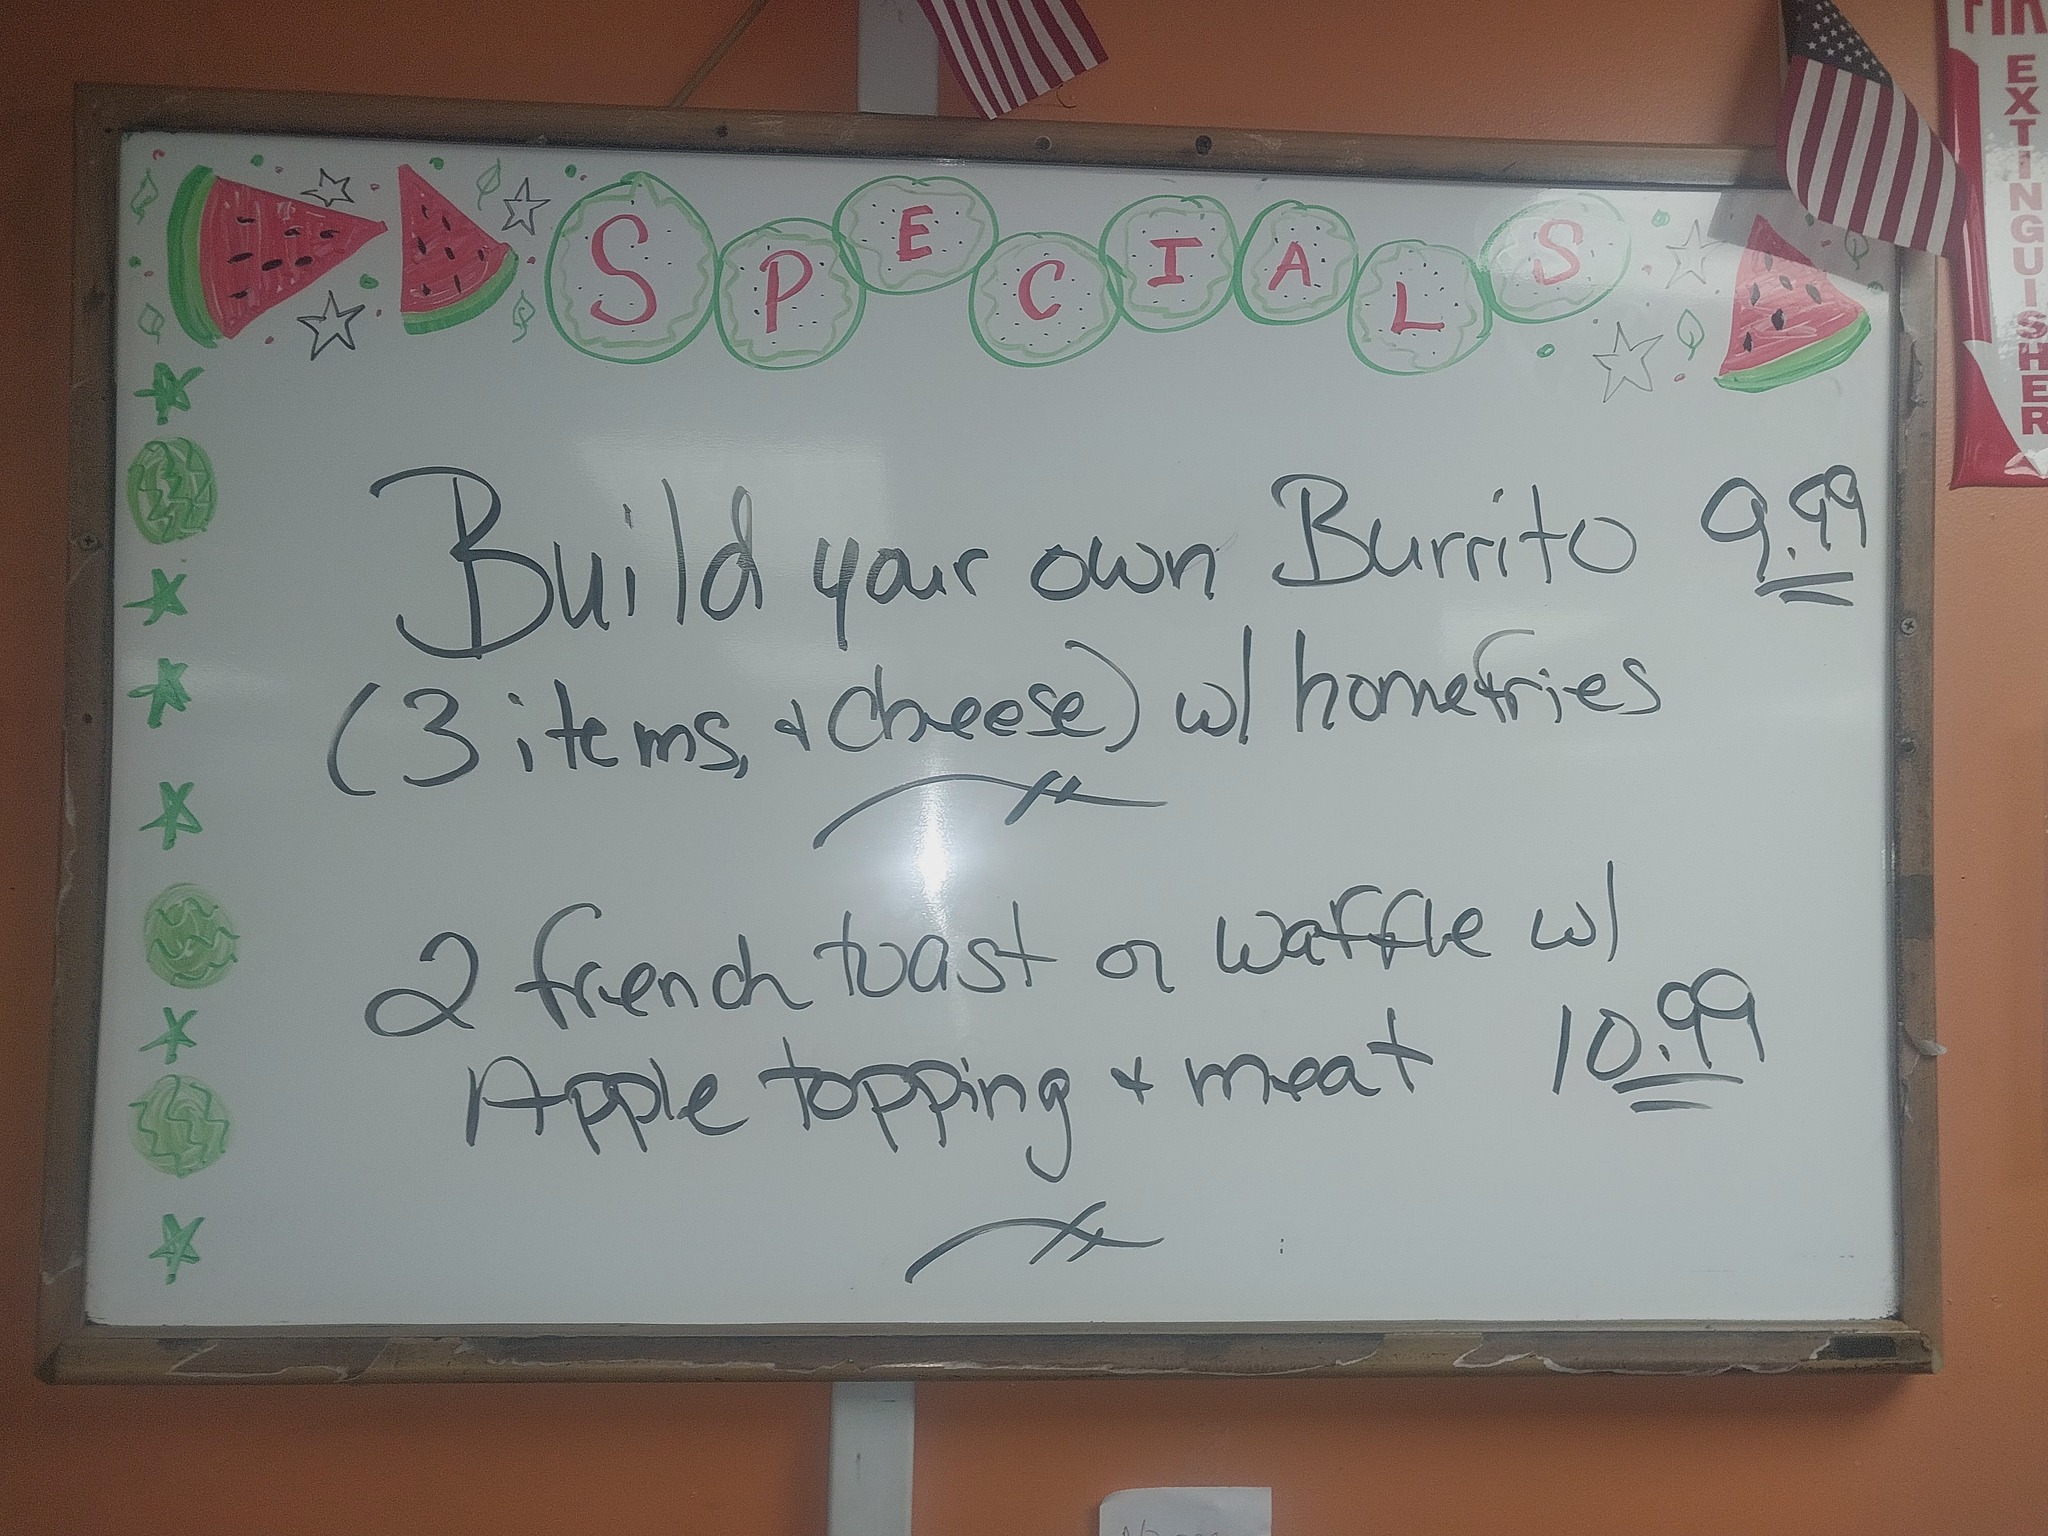 SPECIALS
Build your own Burrito 9.99
(3 items, + cheese) w/ homefries
2 french toast or waffle w/
Apple topping + meat 10.99
EXTINGUISHER